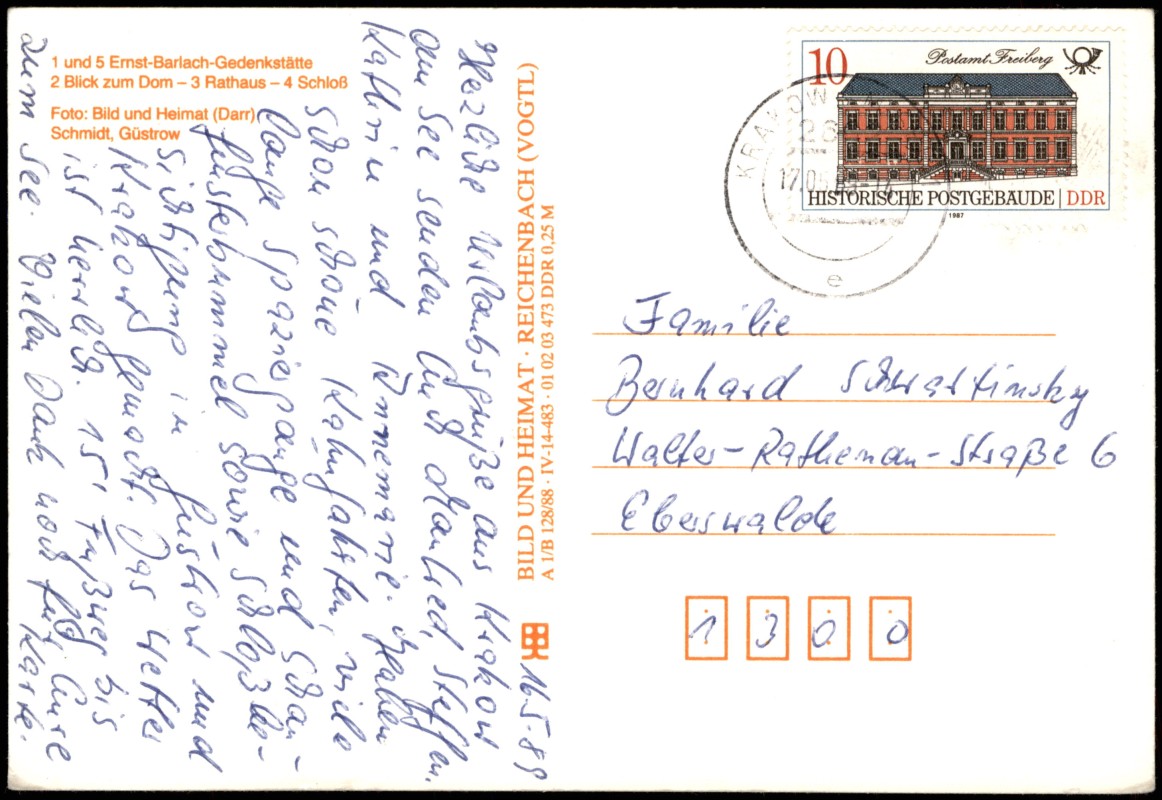 1 und 5 Ernst-Barlach-Gedenkstätte
2 Blick zum Dom – 3 Rathaus – 4 Schloß
Foto: Bild und Heimat (Darr)
Schmidt, Güstrow
16.5.89
Herzliche Urlaubsgrüße aus Krakow
am See senden Euch Manfred, Steffen,
Kathrin und Annemarie. Haben
schon schöne Kahnfahrten, viele
lange Spaziergänge und Schau-
fensterbummel sowie Schloßbe-
sichtigung in Güstrow und
Krakow gemacht. Das Wetter
ist herrlich. 15' Fußweg bis
zum See. Vielen Dank noch für Eure
Karte.
BILD UND HEIMAT · REICHENBACH (VOGTL)
A 1/B 128/88 · IV-14-483 · 01 02 03 473 DDR 0,25 M
10
Postamt Freiberg
HISTORISCHE POSTGEBÄUDE | DDR
1987
KRAKOW
26
17.05.
e
Familie
Bernhard
Walter-Rathenau-Straße 6
Eberswalde
1 3 0 0